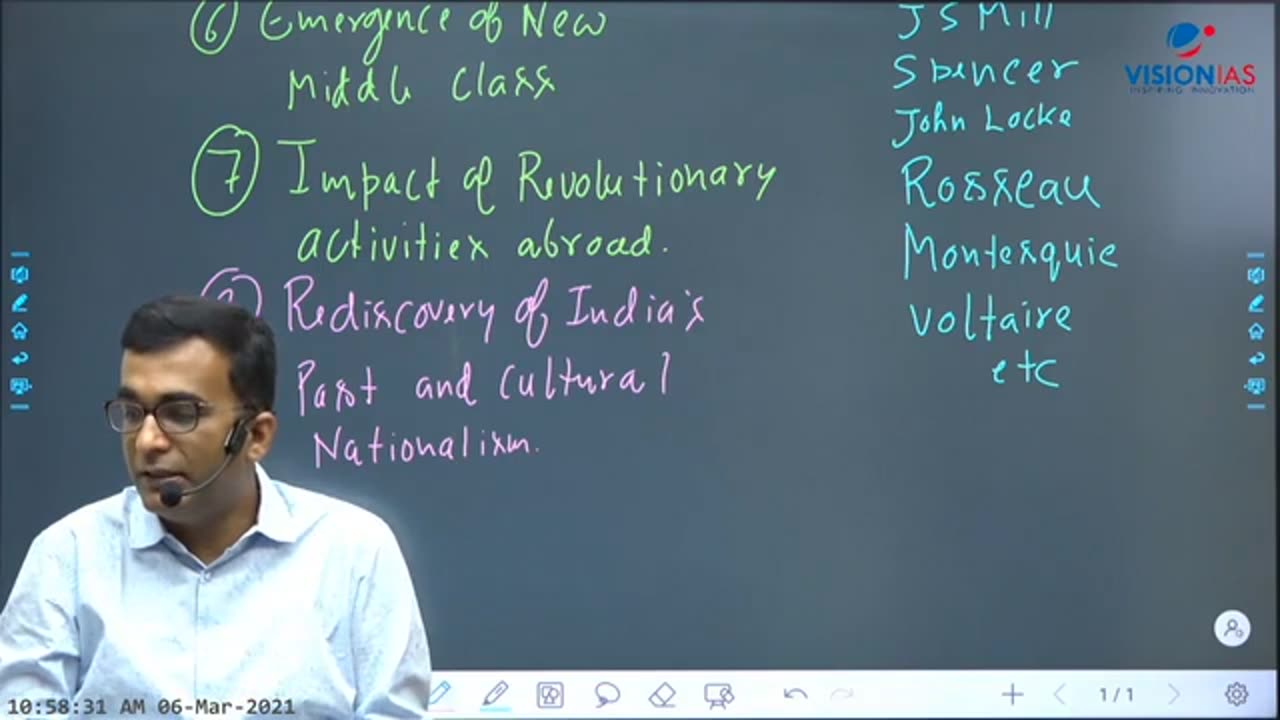 6 Emergence of New
Middle Class
7 Impact of Revolutionary
activities abroad.
Rediscovery of India's
Past and Cultural
Nationalism.
J S Mill
Spencer
John Locke
Rosseau
Montesquie
Voltaire
etc
VISIONIAS
INSPIRING INNOVATION
1/1
10:58:31 AM 06-Mar-2021